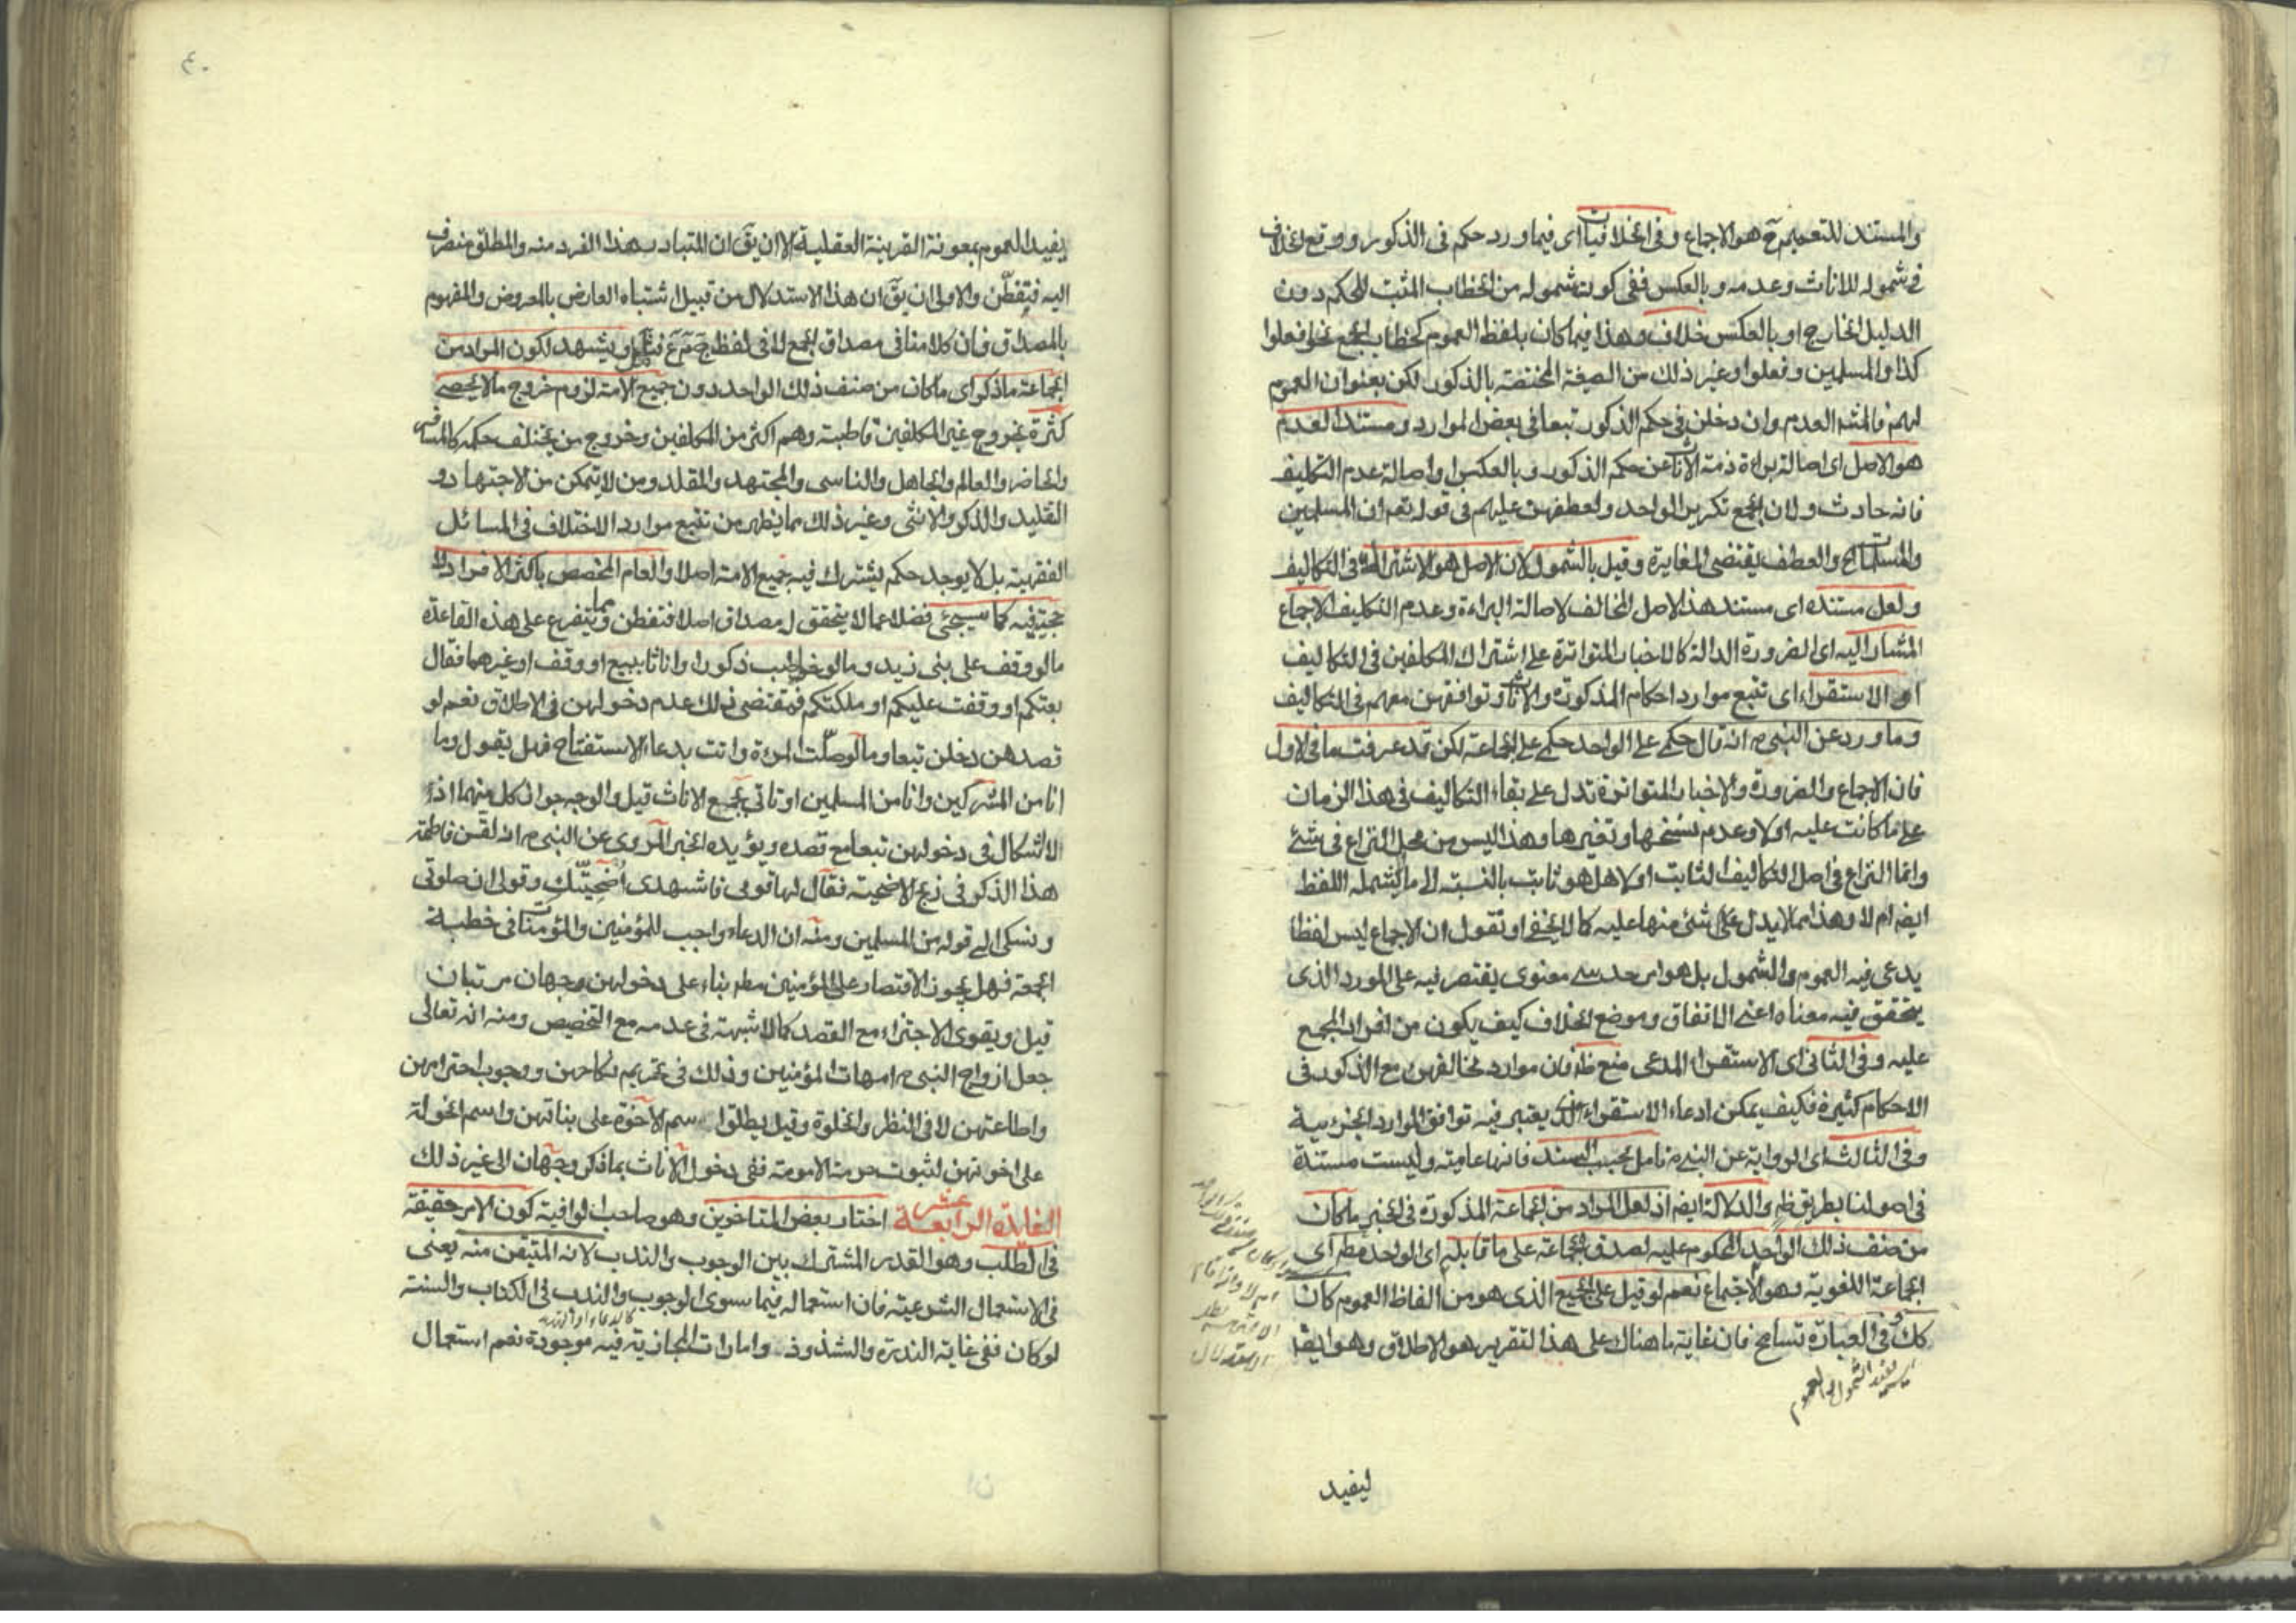 والمستند للتعميم ح هو الاجماع وفى الخلافيات اى فيما ورد حكم فى الذكور ووقع الخلاف
فى شموله للاناث وعدمه وبالعكس ففى كون شموله من الخطاب المثبت للحكم دون
الدليل الخارج او بالعكس خلاف وهذا فيما كان بلفظ العموم كخطاب الجمع نحو افعلوا
كذا والمسلمين وفعلوا وغير ذلك من الصيغة المختصة بالذكور لكن بعنوان العموم
لهم فالمشه العدم وان دخلن فى حكم الذكور تبعا فى بعض الموارد ومستند العدم
هو الاصل اى اصالة براءة ذمة الاناث عن حكم الذكور وبالعكس او اصالة عدم التكليف
فانه حادث ولان الجمع تكرير الواحد ولعطفهن عليهم فى قوله تعم ان المسلمين
والمسلمات الخ والعطف يقتضى المغايرة وقيل بالشمول لان الاصل هو الاشتراك فى التكاليف
ولعل مستنده اى مستند هذا الاصل المخالف لاصالة البراءة وعدم التكليف الاجماع
المشار اليه اى الضرورة الدالة كالاخبار المتواترة على اشتراك المكلفين فى التكاليف
او الاستقراء اى تتبع موارد احكام المذكورة والاناث وتوافقهن معهم فى التكاليف
وما ورد عن النبى ص انه قال حكمى على الواحد حكمى على الجماعة لكن قد عرفت ما فى الاول
فان الاجماع والضرورة والاخبار المتواترة تدل على بقاء التكاليف فى هذا الزمان
على ما كانت عليه اولا وعدم نسخها وتغيرها وهذا ليس من محل النزاع فى شئ
وانما النزاع فى اصل التكاليف الثابت اولا هل هو ثابت بالنسبة الى ما لم يشمله اللفظ
ايضا ام لا وهذا مما لا يدل على شئ منها عليه كما لا يخفى او نقول ان الاجماع ليس لفظا
يدعى فيه العموم والشمول بل هو امر حدسى معنوى يقتصر فيه على المورد الذى
يتحقق فيه معناه اعنى الاتفاق وموضع الخلاف كيف يكون من افراد المجمع
عليه وفى الثانى اى الاستقراء المدعى منع ظه فان موارد مخالفهن مع الذكور فى
الاحكام كثيرة فكيف يمكن ادعاء الاستقراء الذى يعتبر فيه توافق الموارد الجزئية
وفى الثالث اى الرواية عن النبى ص تامل بحسب السند فانها عامية وليست مستندة
فى اصولنا بطريق ظه والدلالة ايضا اذ لعل المراد من الجماعة المذكورة فى الخبر ما كان
من صنف ذلك الواحد المحكوم عليه لصدق الجماعة على ما قابله اى الواحد مطم اى
الجماعة اللغوية وهو الاجتماع نعم لو قيل على الجميع الذى هو من الفاظ العموم كان
كك وفى العبارة تسامح فان غاية ما هناك على هذا التقرير هو الاطلاق وهو ايضا
ليفيد
٤٠
يفيد العموم بمعونة القرينة العقلية الا ان يق ان المتبادر هذا الفرد منه والمطلق منصرف
اليه فتفطن والاولى ان يق ان هذا الاستدلال من قبيل اشتباه العارض بالمعروض والمفهوم
بالمصداق فان كلامنا فى مصداق الجمع لا فى لفظ ج م ع فتامل ويشهد لكون المراد من
الجماعة ما ذكر اى ما كان من صنف ذلك الواحد دون جميع الامة لزوم خروج ما لا يحصى
كثرة بخروج غير المكلفين قاطبة وهم اكثر من المكلفين وخروج من يختلف حكمه كالمسافر
والحاضر والعالم والجاهل والناسى والمجتهد والمقلد ومن لا يتمكن من الاجتهاد و
التقليد والذكر والانثى وغير ذلك مما يظهر من تتبع موارد الاختلاف فى المسائل
الفقهية بل لا يوجد حكم يشترك فيه جميع الامة اصلا والعام المخصص باكثر الافراد لا
حجية فيه كما سيجئ فضلا عما لا يتحقق له مصداق اصلا فتفطن ومما يتفرع على هذه القاعدة
ما لو وقف على بنى زيد وما لو خوطب ذكورا واناثا ببيع او وقف او غيرهما فقال
بعتكم او وقفت عليكم او ملكتكم فمقتضى ذلك عدم دخولهن فى الاطلاق نعم لو
قصدهن دخلن تبعا وما لو صلت امرءة واتت بدعاء الاستفتاح فهل يقول وما
انا من المشركين وانا من المسلمين او تاتى بجمع الاناث قيل والوجه جواز كل منهما اذ
لا اشكال فى دخولهن تبعا مع قصده ويؤيده الخبر المروى عن النبى ص انه لقن فاطمة
هذا الذكر فى ذبح الاضحية فقال لها قومى فاشهدى اضحيتك وقولى ان صلوتى
ونسكى الى قوله من المسلمين ومنه ان الدعاء واجب للمؤمنين والمؤمنات فى خطبة
الجمعة فهل يجوز الاقتصار على المؤمنين مطم بناء على دخولهن وجهان مرتبان
قيل ويقوى الاجتزاء مع القصد كما لا شبهة فى عدمه مع التخصيص ومنه انه تعالى
جعل ازواج النبى ص امهات المؤمنين وذلك فى تحريم نكاحهن ووجوب احترامهن
واطاعتهن لا فى النظر والخلوة وقيل يطلق اسم الاخوة على بناتهن واسم الخولة
على اخوتهن لثبوت حرمة الامومة ففى دخول الاناث بما ذكر وجهان الى غير ذلك
الفايدة الرابعة عشر اختار بعض المتاخرين وهو صاحب الوافية كون الامر حقيقة
فى الطلب وهو القدر المشترك بين الوجوب والندب لانه المتيقن منه يعنى
فى الاستعمال الشرعية فان استعماله فيما سوى الوجوب والندب فى الكتاب والسنة
لو كان ففى غاية الندرة والشذوذ وامارات المجازية فيه موجودة نعم استعمال